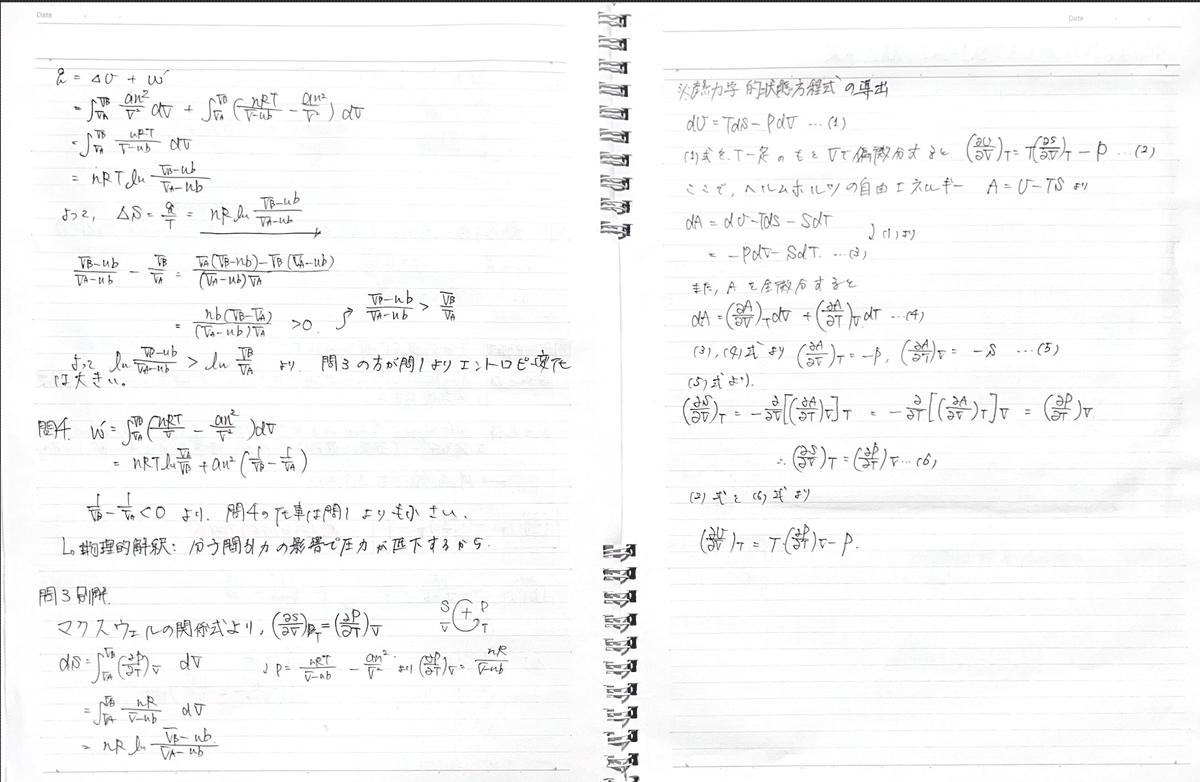 Date
q = ΔU + w
= ∫_{VA}^{VB} an²/V² dV + ∫_{VA}^{VB} (nRT/(V-nb) - an²/V²) dV
= ∫_{VA}^{VB} nRT/(V-nb) dV
= nRT ln (VB-nb)/(VA-nb)
よって, ΔS = q/T = nR ln (VB-nb)/(VA-nb)
(VB-nb)/(VA-nb) - VB/VA = (VA(VB-nb)-VB(VA-nb))/((VA-nb)VA)
= nb(VB-VA)/((VA-nb)VA) > 0. (VB-nb)/(VA-nb) > VB/VA
よって ln (VB-nb)/(VA-nb) > ln VB/VA より. 問3の方が問1よりエントロピー変化
は大きい。
問4. w = ∫_{VA}^{VB} (nRT/V - an²/V²) dV
= nRT ln VB/VA + an² (1/VB - 1/VA)
1/VB - 1/VA < 0 より. 問4の仕事は問1よりも小さい.
物理的解釈: 分子間引力の影響で圧力が低下するから
問3 別解
マクスウェルの関係式より, (∂S/∂V)T = (∂P/∂T)V
S P V T
dS = ∫_{VA}^{VB} (∂P/∂T)V dV
P = nRT/(V-nb) - an²/V² より (∂P/∂T)V = nR/(V-nb)
= ∫_{VA}^{VB} nR/(V-nb) dV
= nR ln (VB-nb)/(VA-nb)
Date
※熱力学的状態方程式の導出
dU = TdS - PdV … (1)
(1)式を, T一定のもとVで偏微分すると (∂U/∂V)T = T(∂S/∂V)T - P … (2)
ここで, ヘルムホルツの自由エネルギー A = U-TS より
dA = dU-TdS-SdT
↓ (1)より
= -PdV-SdT. … (3)
また, Aを全微分すると
dA = (∂A/∂V)T dV + (∂A/∂T)V dT … (4)
(3), (4)式より (∂A/∂V)T = -P, (∂A/∂T)V = -S … (5)
(5)式より.
(∂S/∂V)T = -∂/∂V[(∂A/∂T)V]T = -∂/∂T[(∂A/∂V)T]V = (∂P/∂T)V
∴ (∂S/∂V)T = (∂P/∂T)V … (6)
(2)式と(6)式より
(∂U/∂V)T = T(∂P/∂T)V - P.